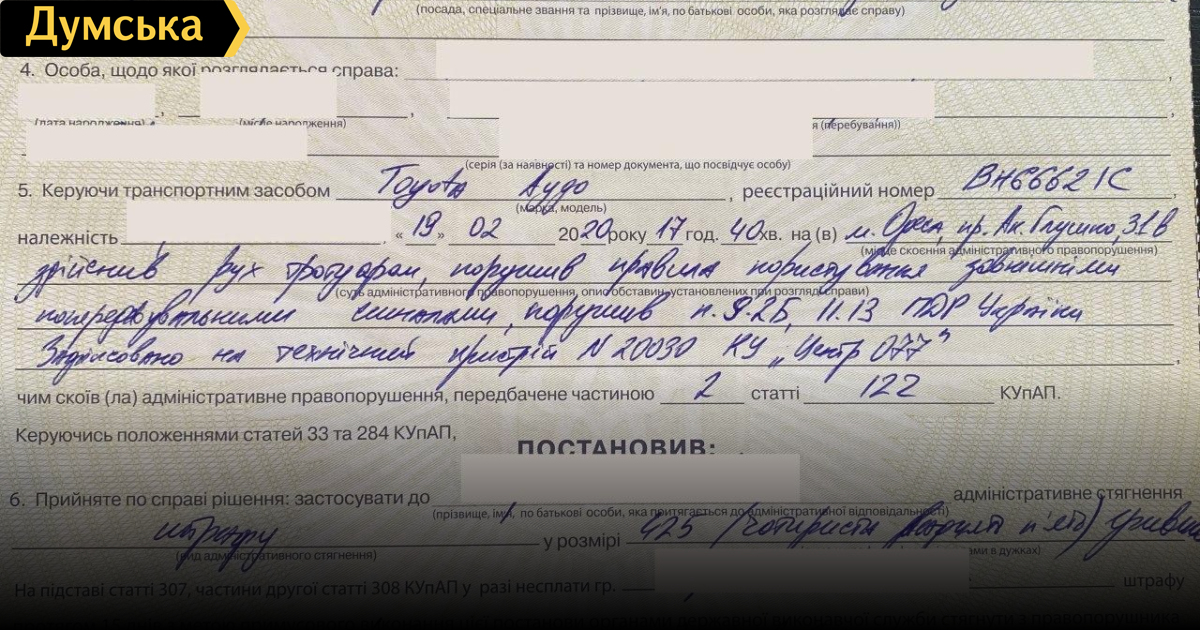 Думська
(посада, спеціальне звання та прізвище, ім'я, по батькові особи, яка розглядає справу)
4. Особа, щодо якої розглядається справа: ,
, ,
(дата народження) (місце народження) я (перебування))
(серія (за наявності) та номер документа, що посвідчує особу)
5. Керуючи транспортним засобом Toyota , реєстраційний номер ВН6662ІС,
(марка, модель)
належність . «19» 02 2020 року 17 год. 40 хв. на (в) м. Одеса, пр. Ак. Глушко, 31В
(місце скоєння адміністративного правопорушення)
здійснив рух тротуаром, порушив правила користування зовнішніми
(суть адміністративного правопорушення, опис обставин, установлених при розгляді справи)
попереджувальними сигналами, порушив п. 9.2Б, 11.13 ПДР України
Зафіксовано на технічний пристрій N 20030 КУ „Центр 077" ,
чим скоїв (ла) адміністративне правопорушення, передбачене частиною 2 статті 122 КУпАП.
Керуючись положеннями статей 33 та 284 КУпАП,
ПОСТАНОВИВ:
6. Прийняте по справі рішення: застосувати до адміністративне стягнення
(прізвище, ім'я, по батькові особи, яка притягається до адміністративної відповідальності)
штрафу у розмірі 425 (чотириста двадцять п'ять) гривень
(вид адміністративного стягнення) ами в дужках)
На підставі статті 307, частини другої статті 308 КУпАП у разі несплати гр. штрафу